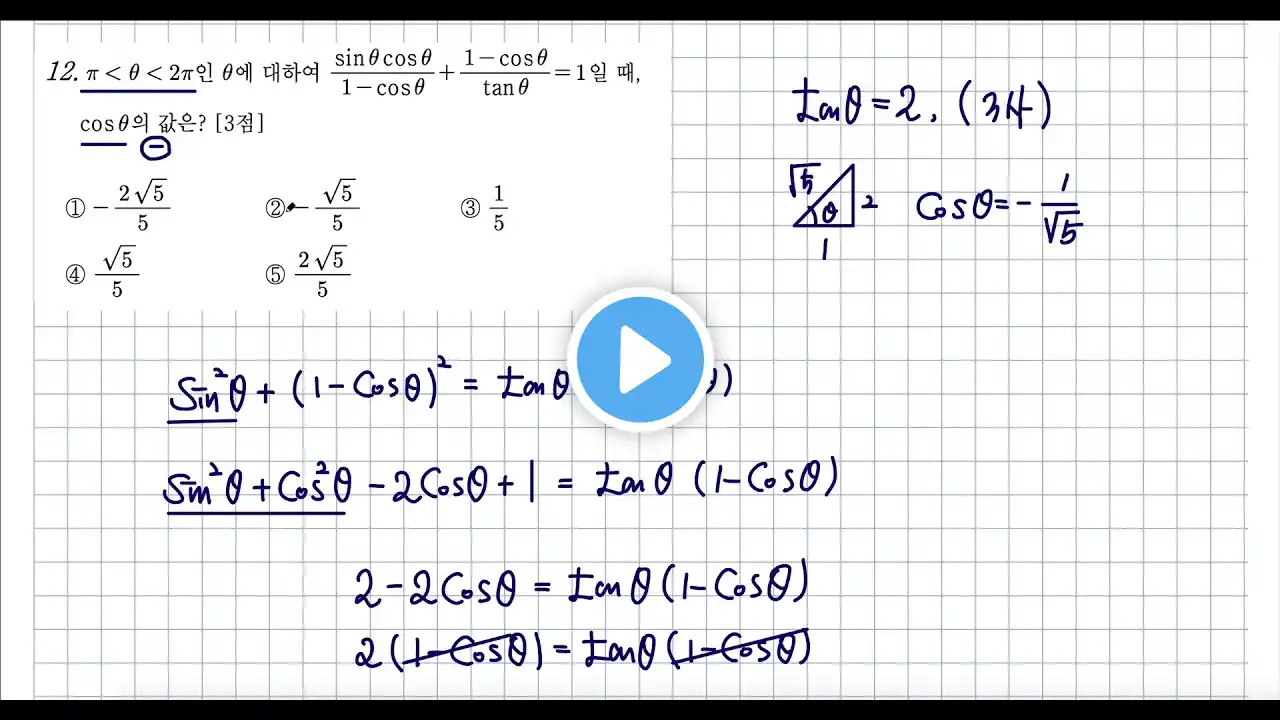 12. π < θ < 2π인 θ에 대하여 sinθcosθ/(1−cosθ) + (1−cosθ)/tanθ = 1일 때,
cosθ의 값은? [3점]
⊖
① −2√5/5 ② −√5/5 ③ 1/5
④ √5/5 ⑤ 2√5/5
tanθ = 2, (3사)
√5 θ 2 1
cosθ = −1/√5
sin²θ + (1−cosθ)² = tanθ θ)
sin²θ + cos²θ − 2cosθ + 1 = tanθ (1−cosθ)
2 − 2cosθ = tanθ (1−cosθ)
2 (1−cosθ) = tanθ (1−cosθ)